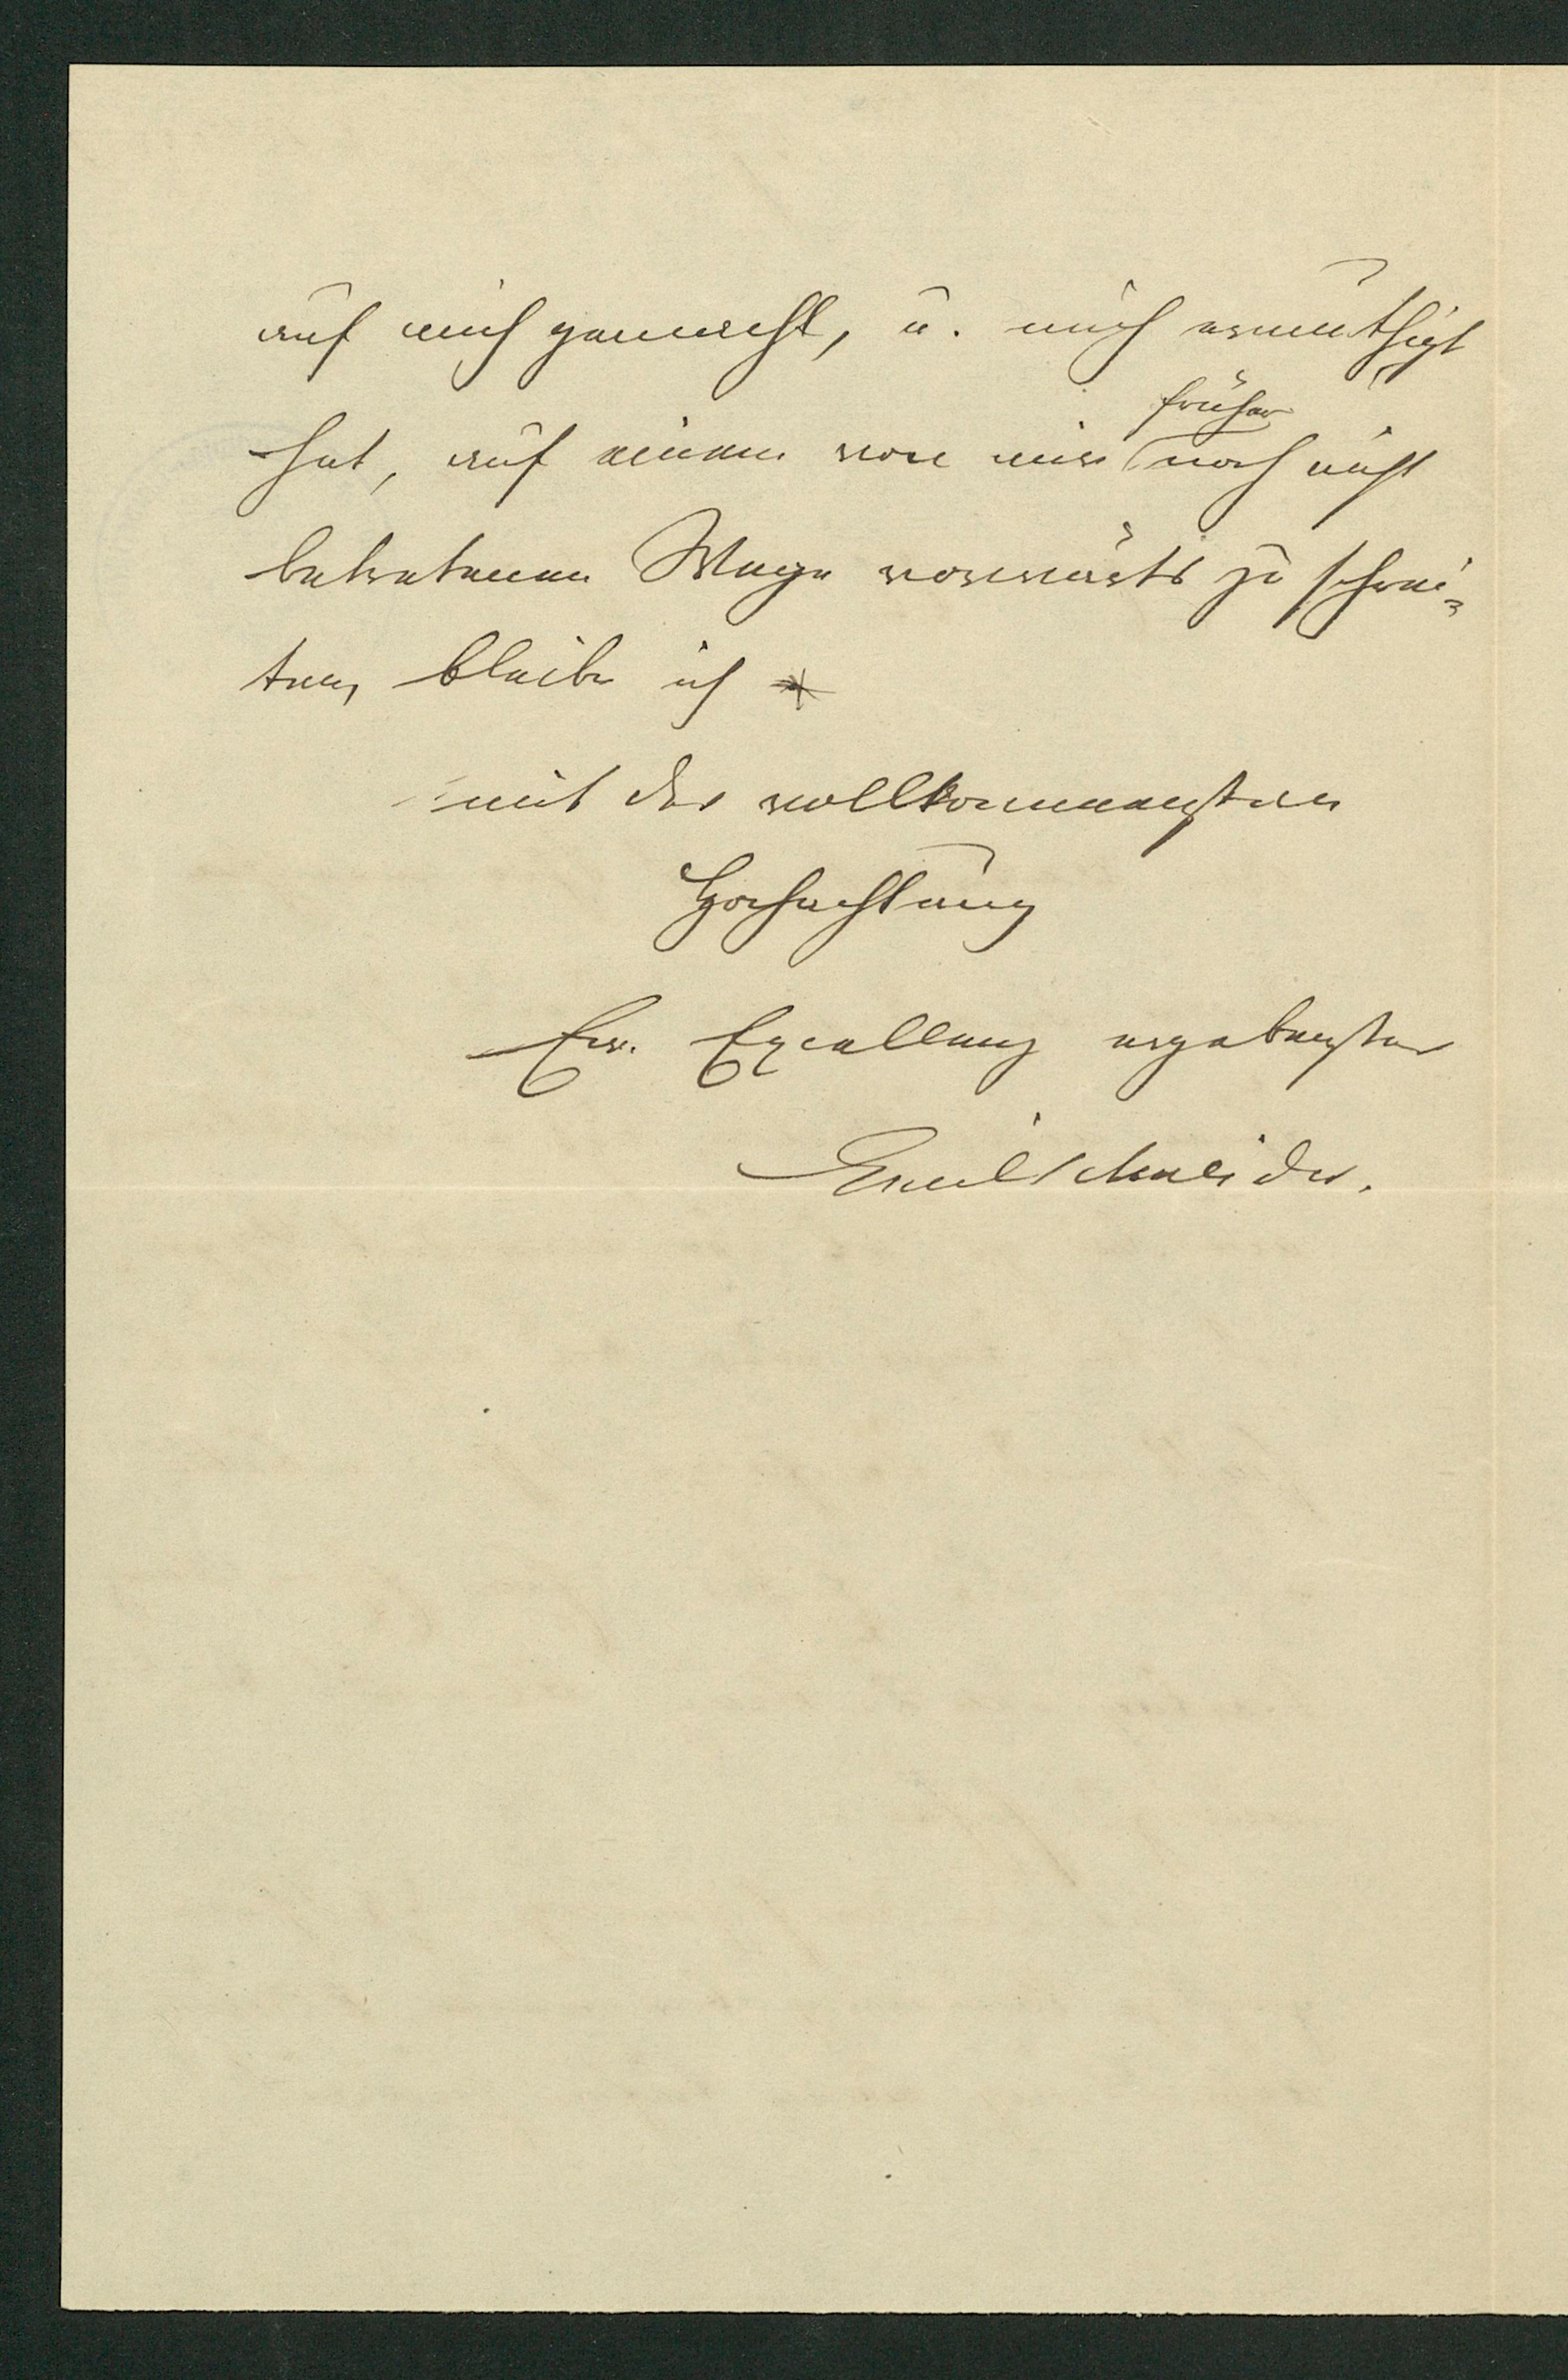 auf mich gemacht, u. mich ermuthigt
hat, auf einem von mir früher noch nicht
betretenen Wege vorwärts zu schrei-
ten, bleibe ich
mit der vollkommensten
Hochachtung
Ew. Excellenz ergebenster
Emil Schneider.